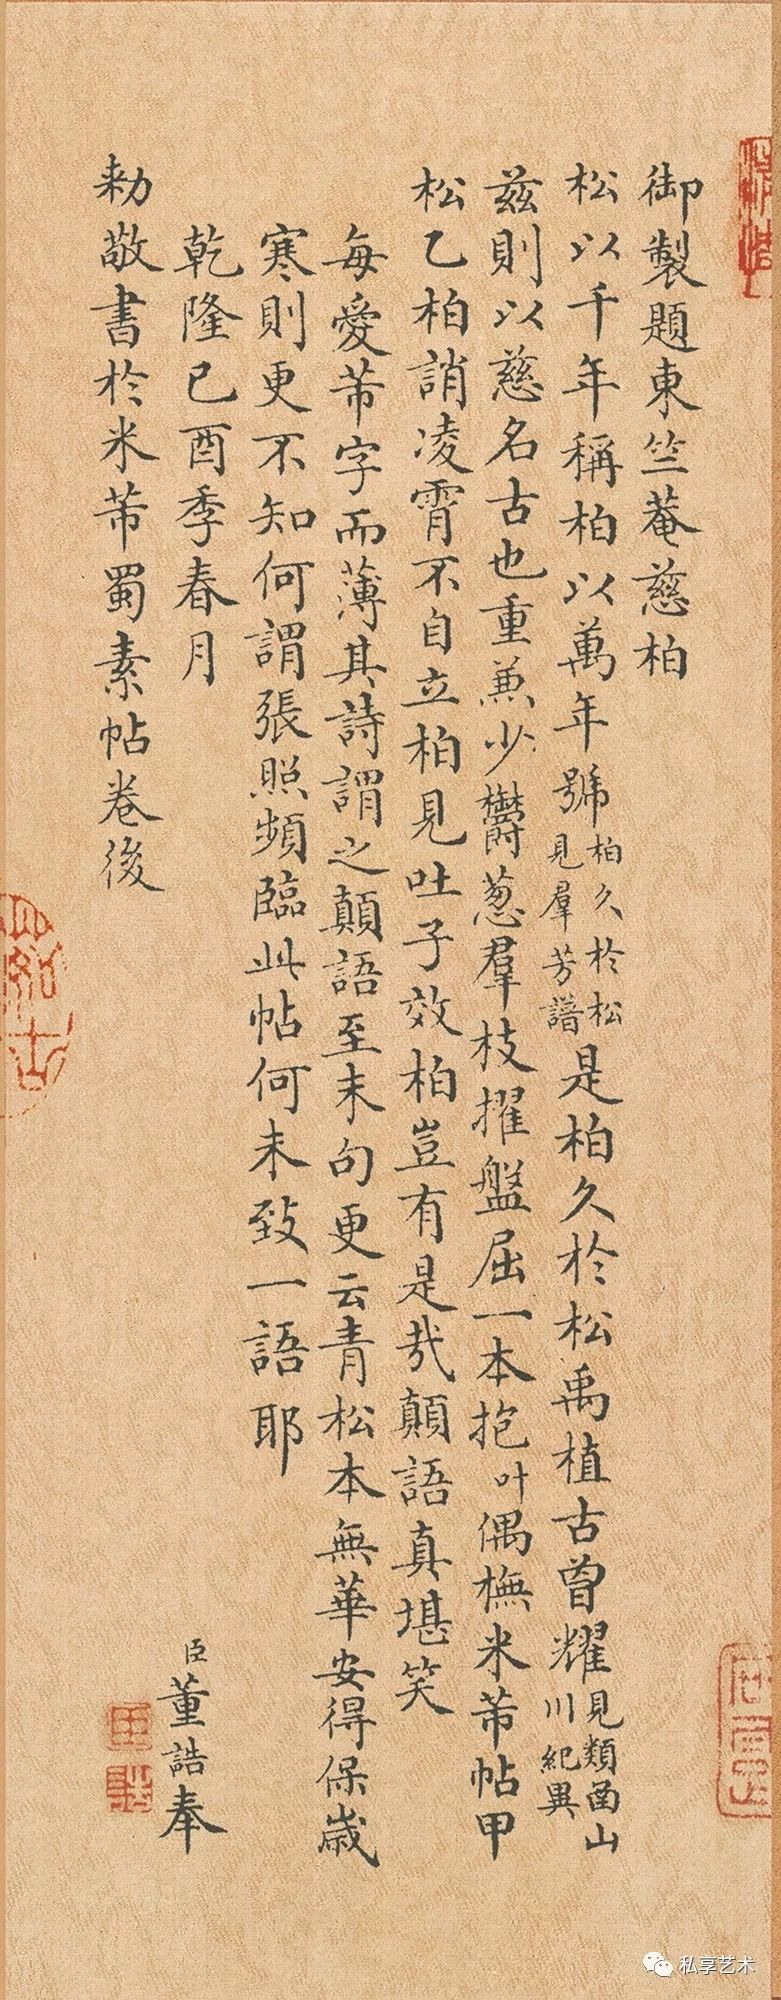 御製題東竺菴慈柏
松以千年稱柏以萬年號柏久於松見羣芳譜是柏久於松禹植古曾耀見類函山川紀異
茲則以慈名古也重兼少欝葱羣枝擢盤屈一本抱叶偶橅米芾帖甲
松乙柏誚凌霄不自立柏見吐子效柏豈有是㢤顛語真堪笑
每愛芾字而薄其詩謂之顛語至末句更云青松本無華安得保歲
寒則更不知何謂張照頻臨此帖何未致一語耶
乾隆己酉季春月
臣董誥奉
勅敬書於米芾蜀素帖卷後
私享艺术